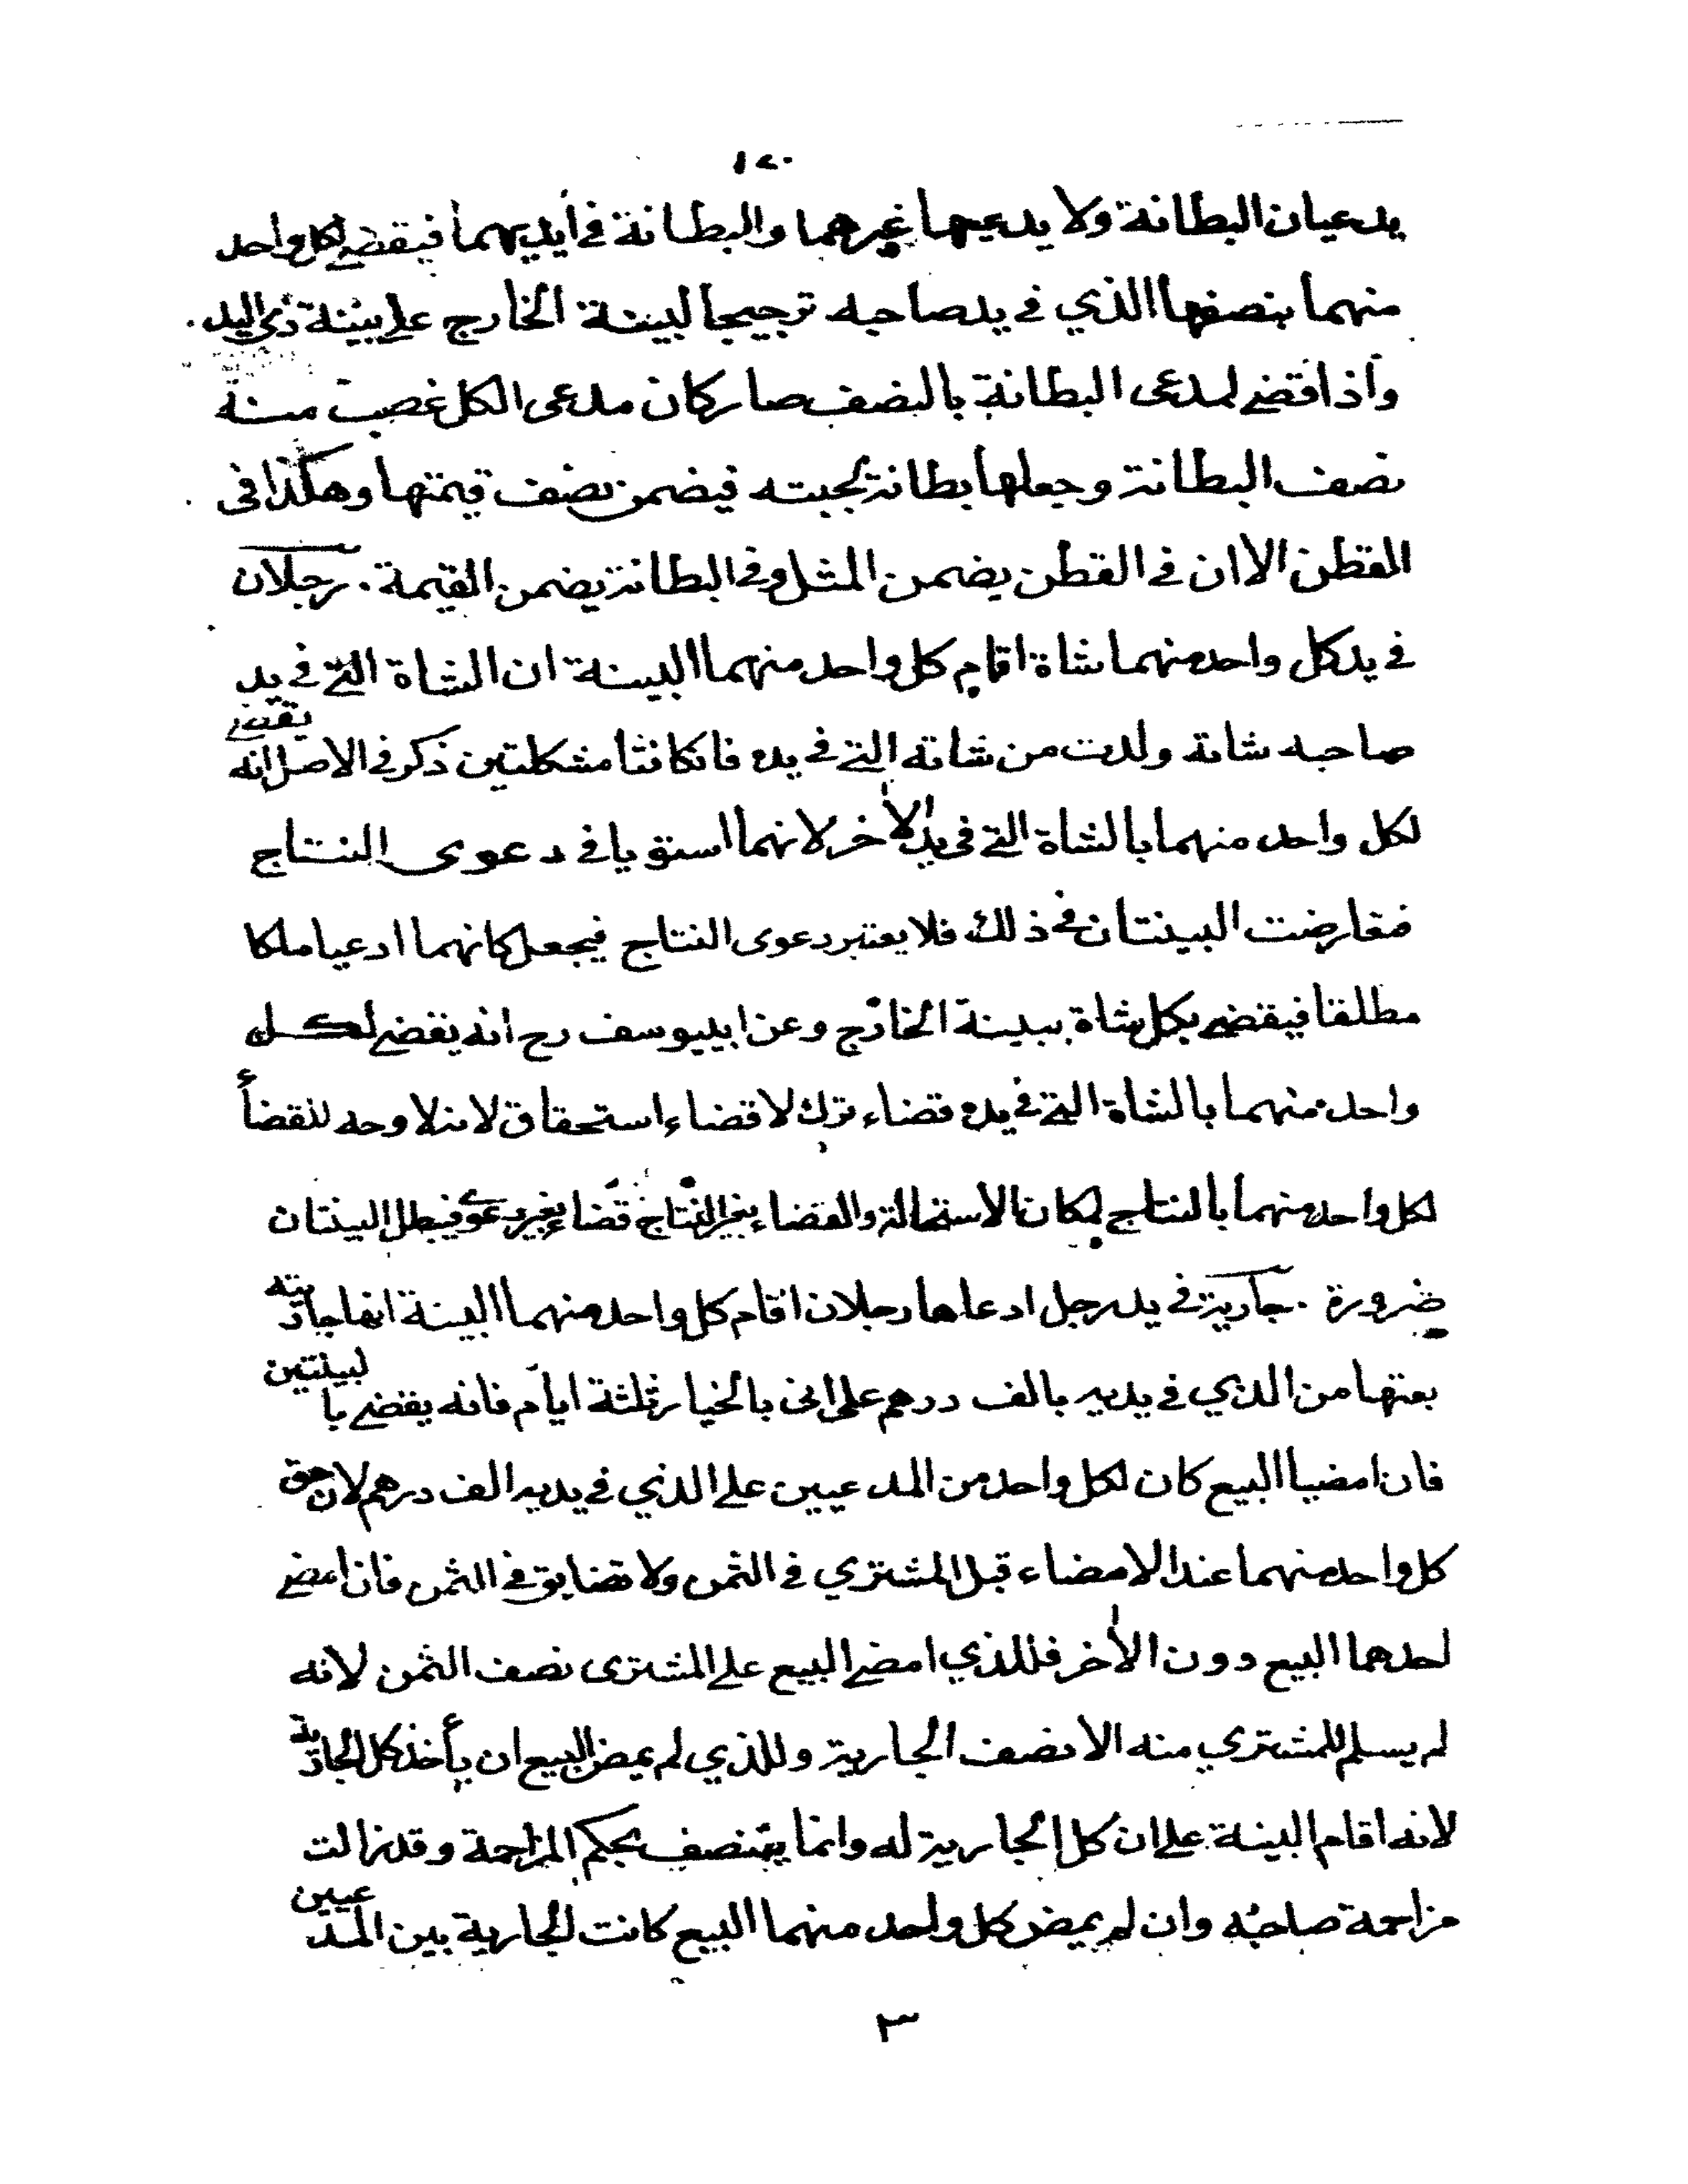 ١٢٠
يدعيان البطانة ولا يدعيها غيرهما والبطانة في أيديهما فيقضي لكل واحد
منهما بنصفها الذي في يد صاحبه ترجيحا لبينة الخارج على بينة ذي اليد
واذا قضي لمدعى البطانة بالنصف صار كان مدعى الكل غصب منه
نصف البطانة وجعلها بطانة لجبته فيضمن نصف قيمتها وهكذا في
القطن الا ان في القطن يضمن المثل وفي البطانة يضمن القيمة . رجلان
في يد كل واحد منهما شاة اقام كل واحد منهما البينة ان الشاة التي في يد
صاحبه شاتة ولدت من شاته التي في يده فان كانتا مشكلتين ذكر في الاصل انه يقضي
لكل واحد منهما بالشاة التي في يد الأخر لانهما استويا في دعوى النتاج
فتعارضت البينتان في ذلك فلا يعتبر دعوى النتاج فيجعل كانهما ادعيا ملكا
مطلقا فيقضي بكل شاة ببينة الخارج وعن ابي يوسف رح انه يقضي لكل
واحد منهما بالشاة التي في يده قضاء ترك لا قضاء استحقاق لانه لا وجه للقضأ
لكل واحد منهما بالنتاج لمكان الاستحالة والقضاء بغير النتاج قضاء بغير دعوى فيبطل البينتان
ضرورة . جارية في يد رجل ادعاها رجلان اقام كل واحد منهما البينة انها جاريته
بعتها من الذي في يديه بالف درهم على انى بالخيار ثلثة ايام فانه يقضي بالبينتين
فان امضيا البيع كان لكل واحد من المدعيين على الذي في يديه الف درهم لان حق
كل واحد منهما عند الامضاء قبل المشتري في الثمن ولا تضايق في الثمن فان امضي
احدهما البيع دون الأخر فللذي امضي البيع على المشترى نصف الثمن لانه
لم يسلم للمشتري منه الا نصف الجارية وللذي لم يمض البيع ان يأخذ كل الجارية
لانه اقام البينة على ان كل الجارية له وانما يتنصف بحكم المزاحمة وقد زالت
مزاحمة صاحبه وان لم يمض كل واحد منهما البيع كانت الجارية بين المدعيين
٣